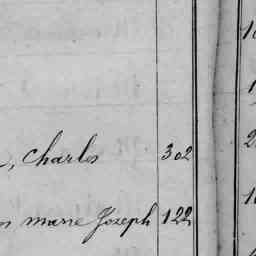 , Charles 302
marie Jozeph 122